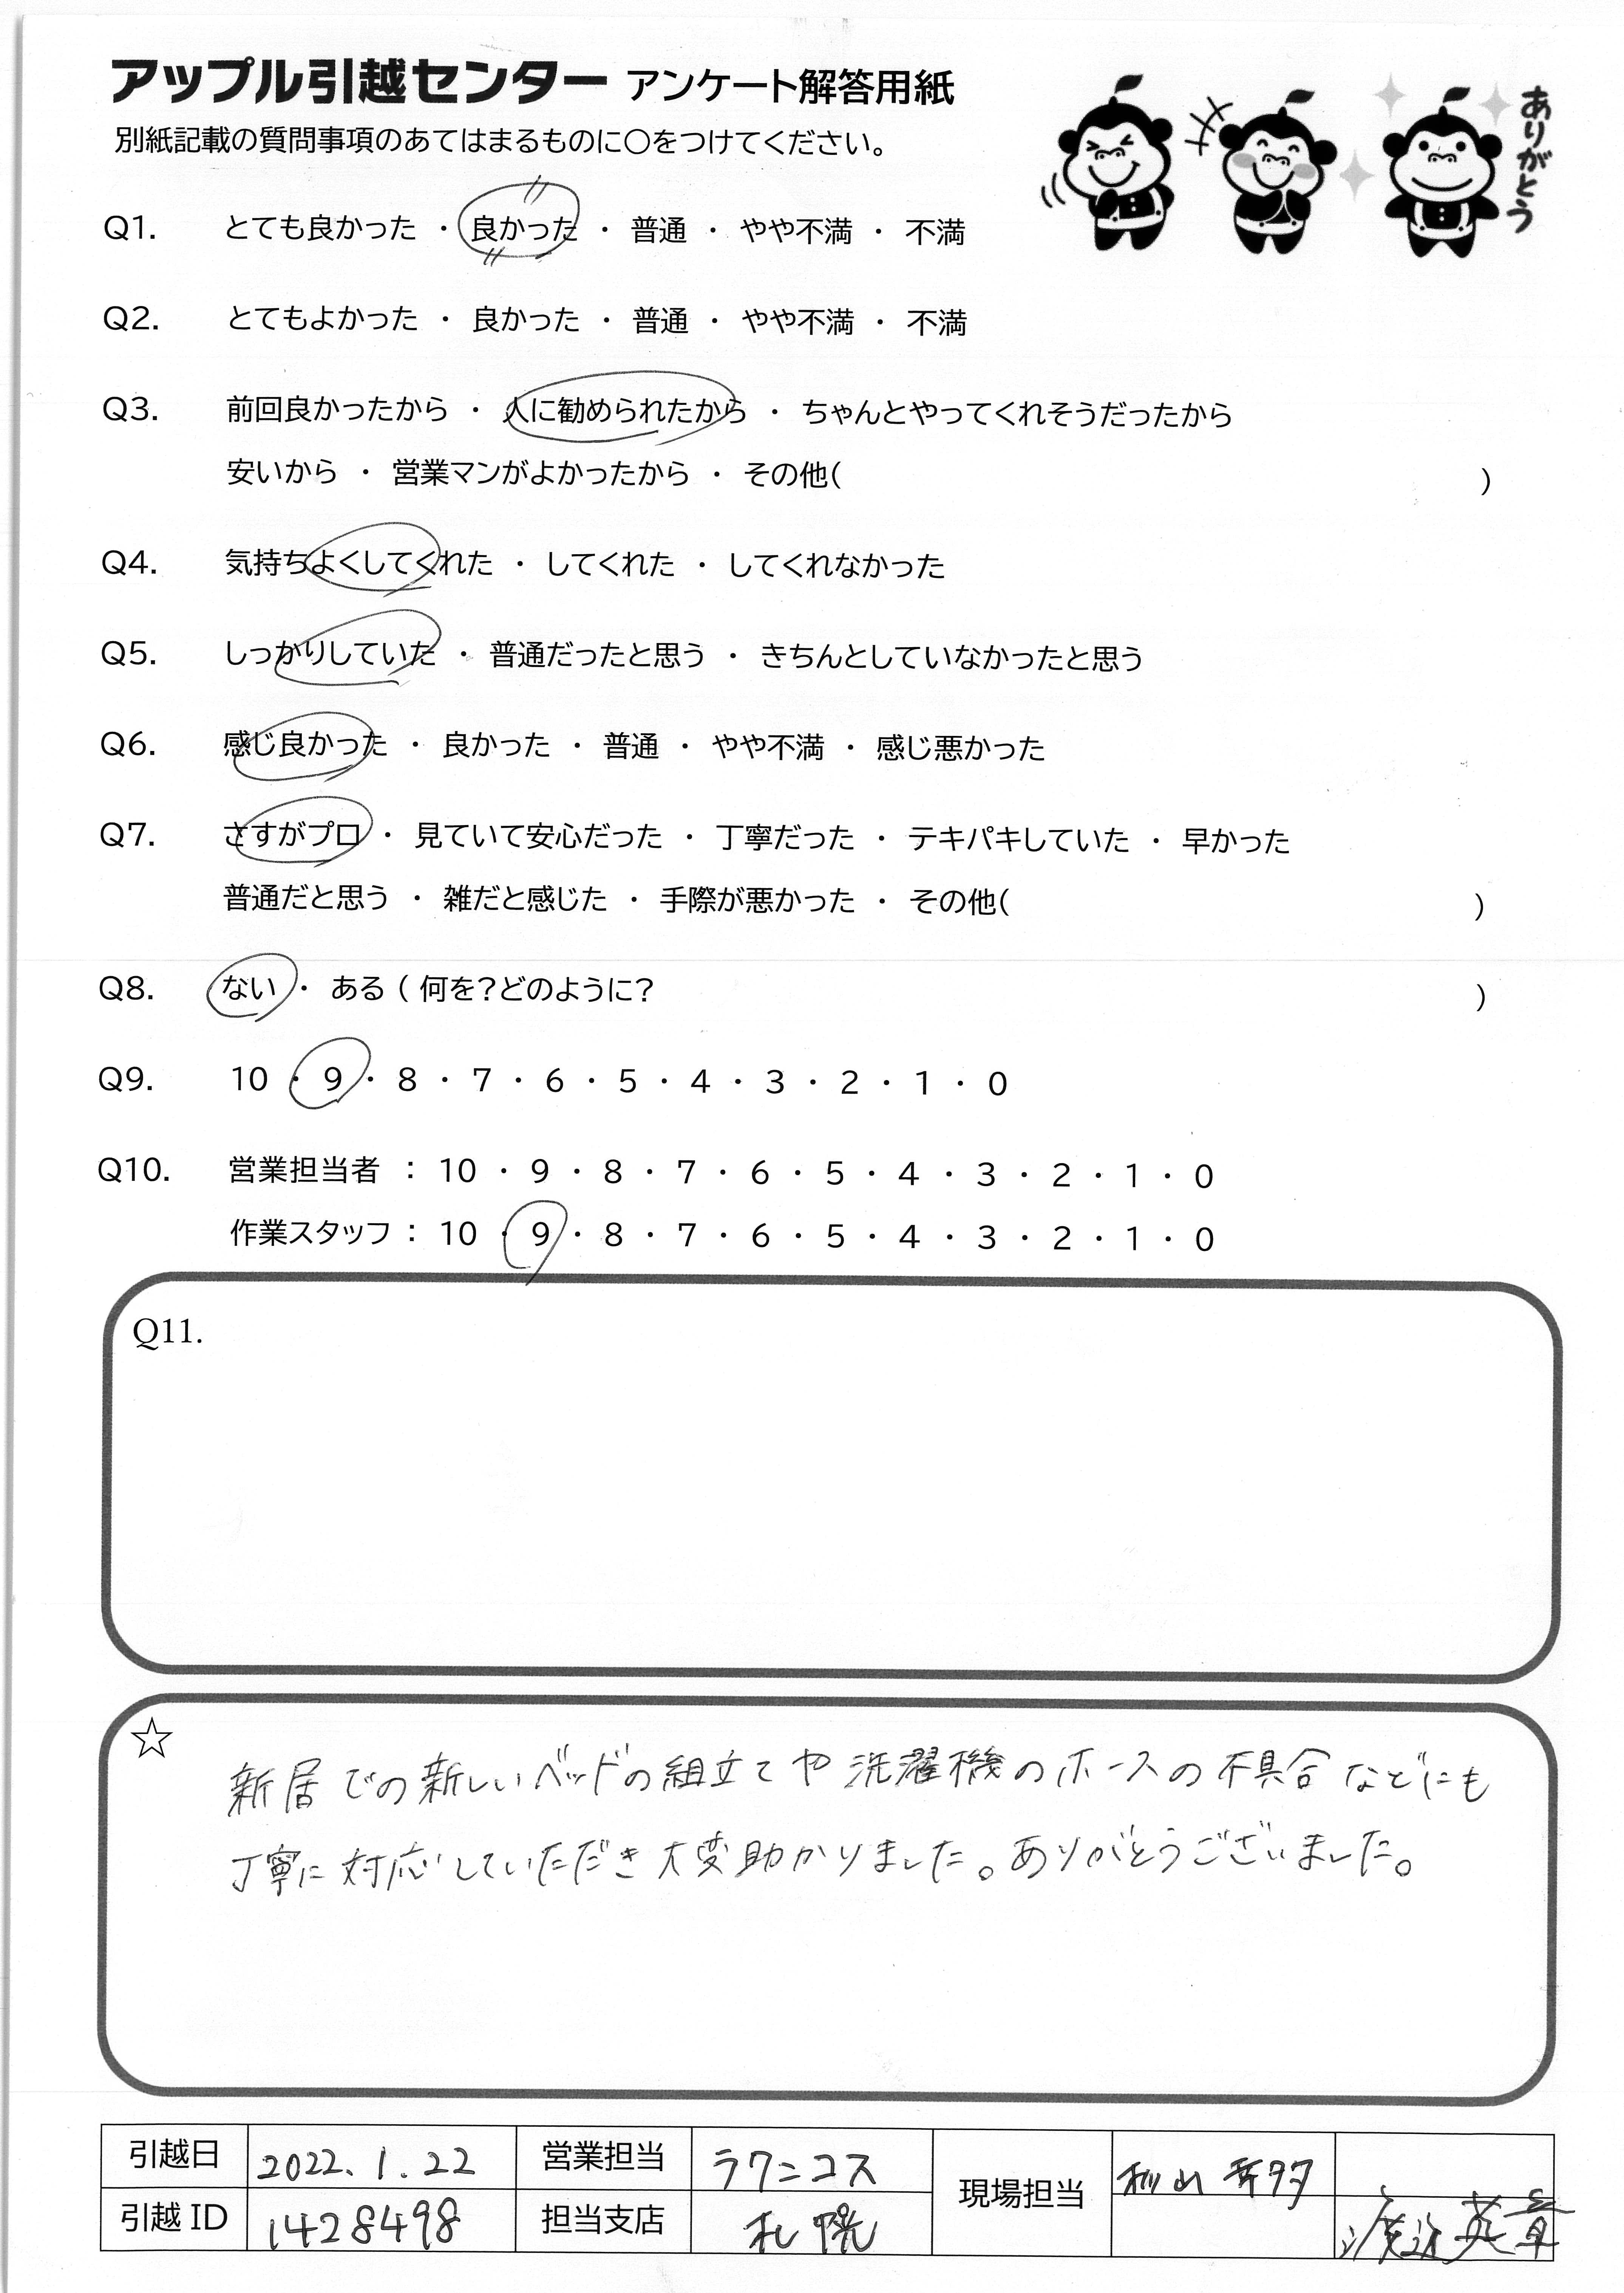 アップル引越センター アンケート解答用紙
別紙記載の質問事項のあてはまるものに〇をつけてください。
ありがとう
Q1. とても良かった ・ 良かった ・ 普通 ・ やや不満 ・ 不満
Q2. とてもよかった ・ 良かった ・ 普通 ・ やや不満 ・ 不満
Q3. 前回良かったから ・ 人に勧められたから ・ ちゃんとやってくれそうだったから
安いから ・ 営業マンがよかったから ・ その他( )
Q4. 気持ちよくしてくれた ・ してくれた ・ してくれなかった
Q5. しっかりしていた ・ 普通だったと思う ・ きちんとしていなかったと思う
Q6. 感じ良かった ・ 良かった ・ 普通 ・ やや不満 ・ 感じ悪かった
Q7. さすがプロ ・ 見ていて安心だった ・ 丁寧だった ・ テキパキしていた ・ 早かった
普通だと思う ・ 雑だと感じた ・ 手際が悪かった ・ その他( )
Q8. ない ・ ある ( 何を?どのように? )
Q9. 10 ・ 9 ・ 8 ・ 7 ・ 6 ・ 5 ・ 4 ・ 3 ・ 2 ・ 1 ・ 0
Q10. 営業担当者 : 10 ・ 9 ・ 8 ・ 7 ・ 6 ・ 5 ・ 4 ・ 3 ・ 2 ・ 1 ・ 0
作業スタッフ : 10 ・ 9 ・ 8 ・ 7 ・ 6 ・ 5 ・ 4 ・ 3 ・ 2 ・ 1 ・ 0
Q11.
☆
新居での新しいベッドの組立てや洗濯機のホースの不具合などにも
丁寧に対応していただき大変助かりました。ありがとうございました。
引越日 2022.1.22 営業担当 ラクニコス 現場担当
引越ID 1428498 担当支店 札幌